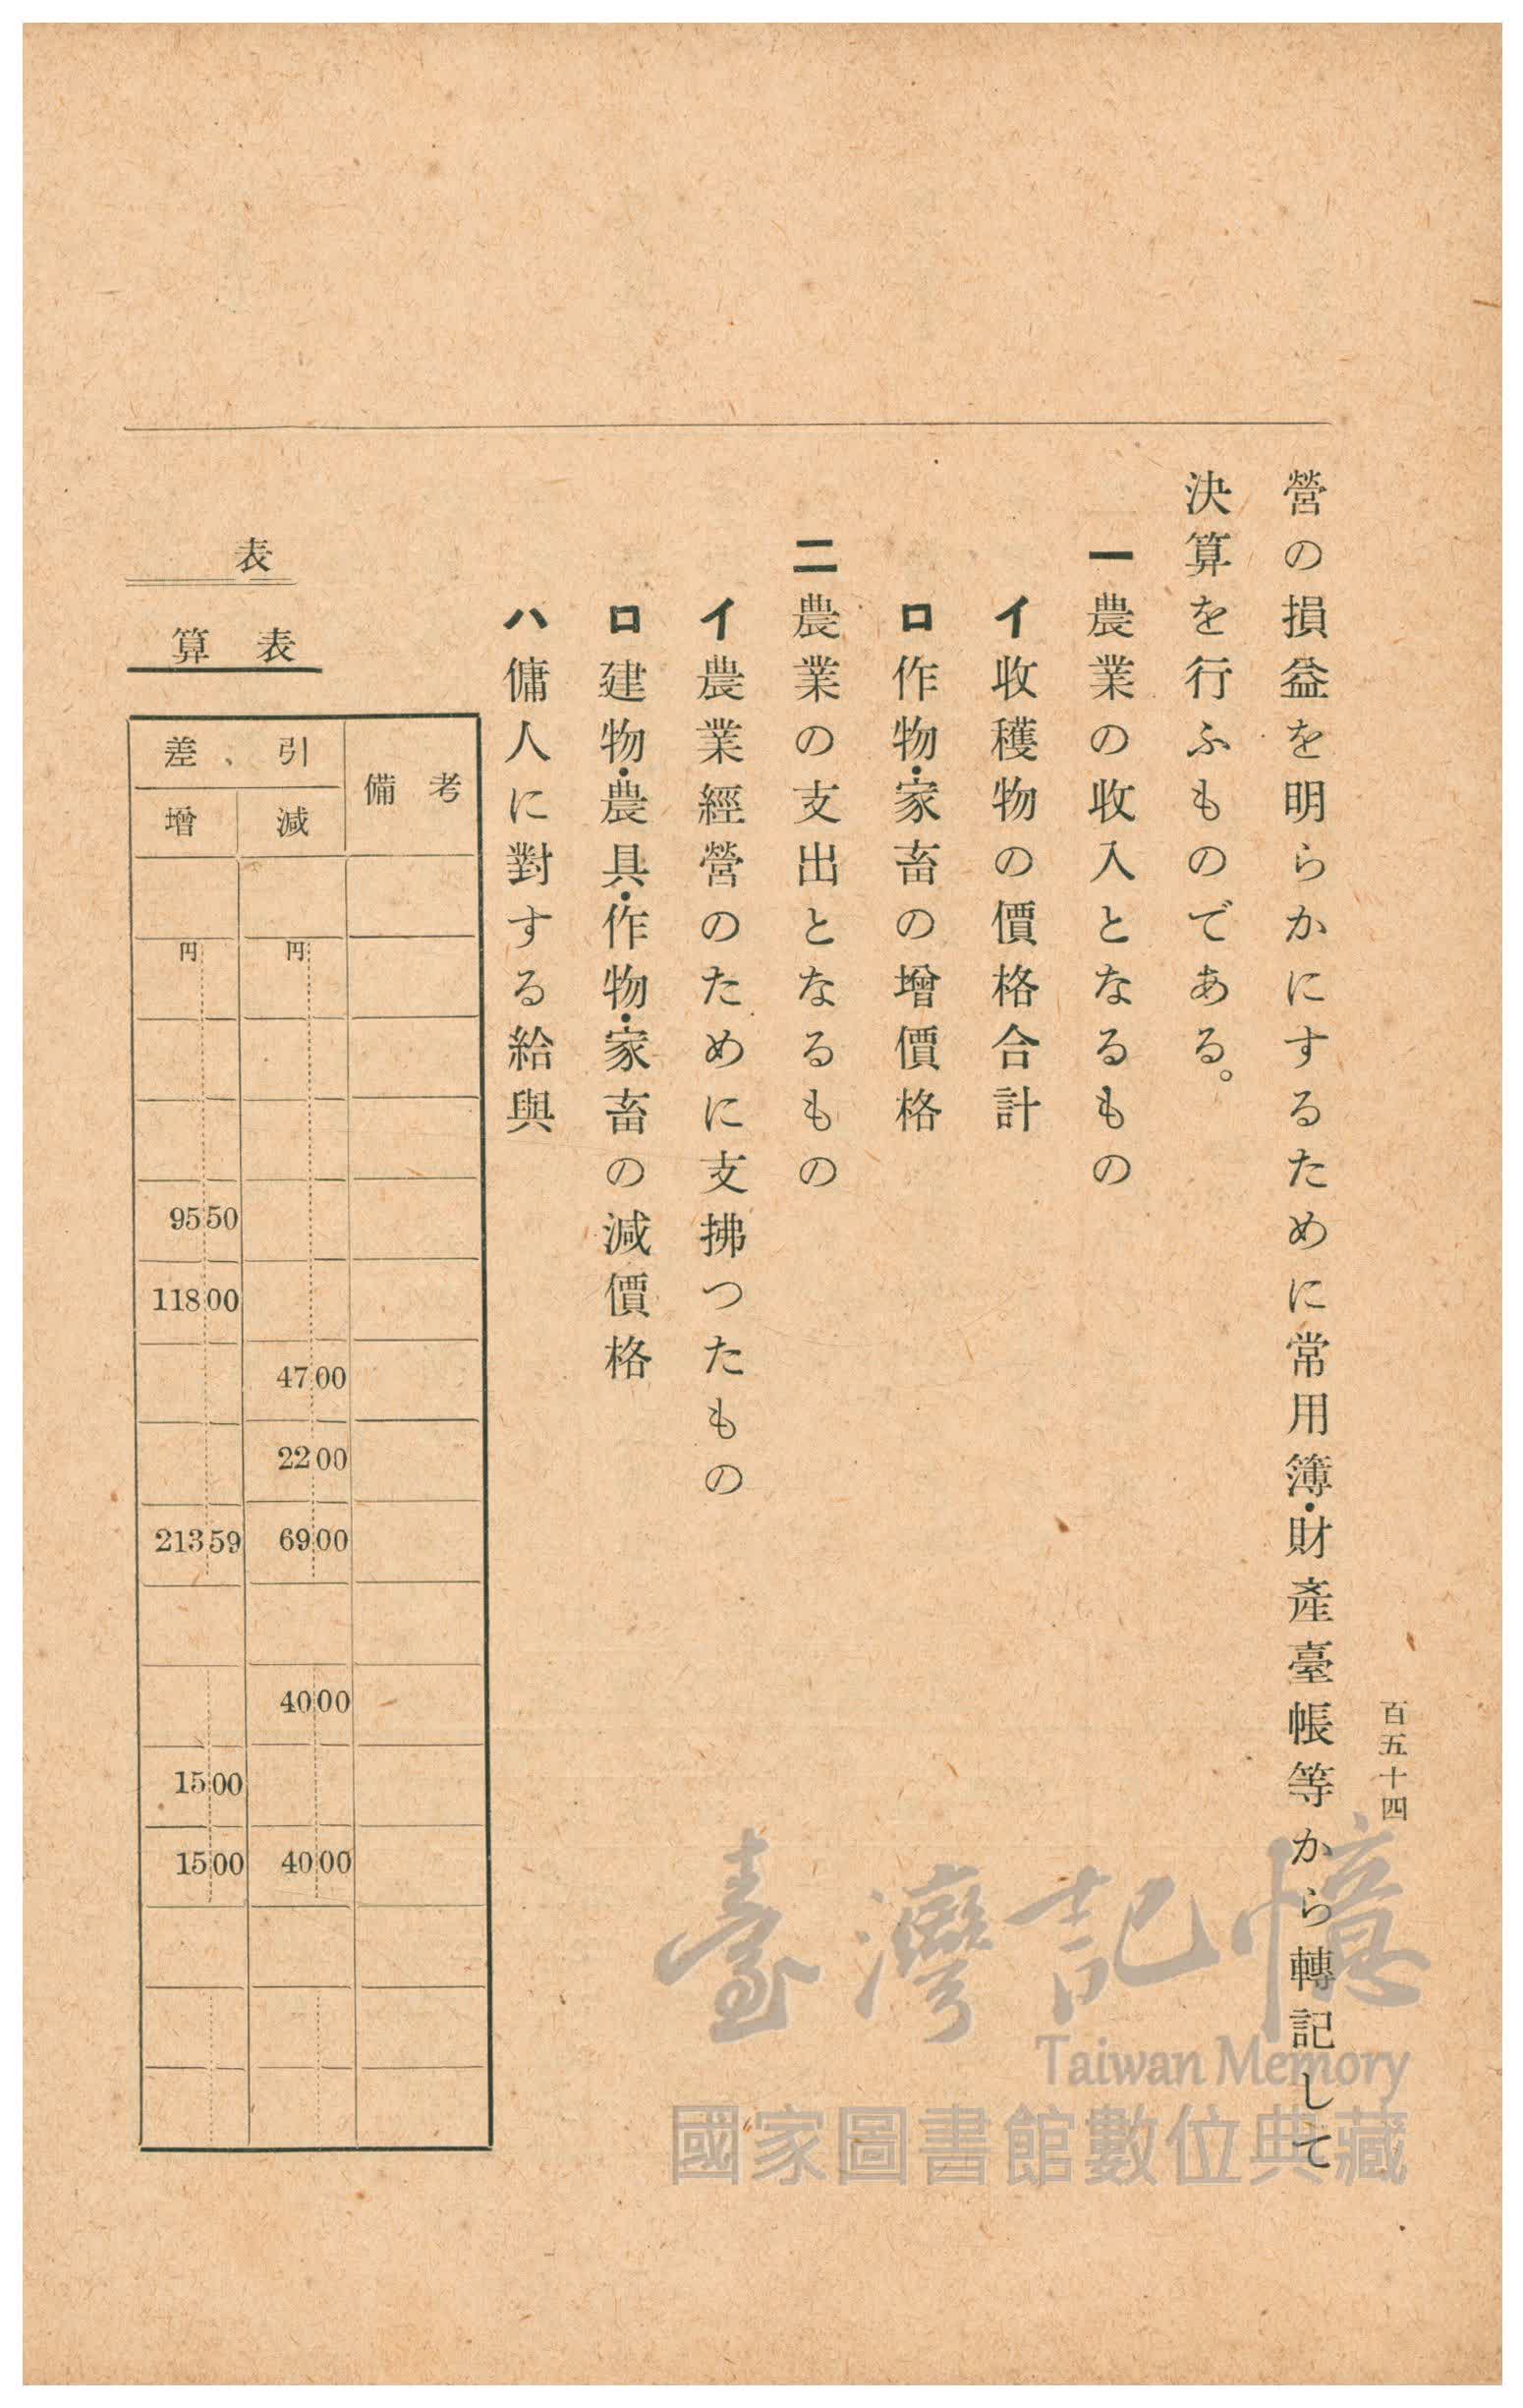 百五十四
營の損益を明らかにするために常用簿・財產臺帳等から轉記して
決算を行ふものである。
一 農業の收入となるもの
イ 收穫物の價格合計
ロ 作物・家畜の增價格
二 農業の支出となるもの
イ 農業經營のために支拂つたもの
ロ 建物・農具・作物・家畜の減價格
ハ 傭人に對する給與
表
算表
差、引 備考
增 減
円 円
95 50
118 00
47 00
22 00
213 59 69 00
40 00
15 00
15 00 40 00
臺灣記憶
Taiwan Memory
國家圖書館數位典藏